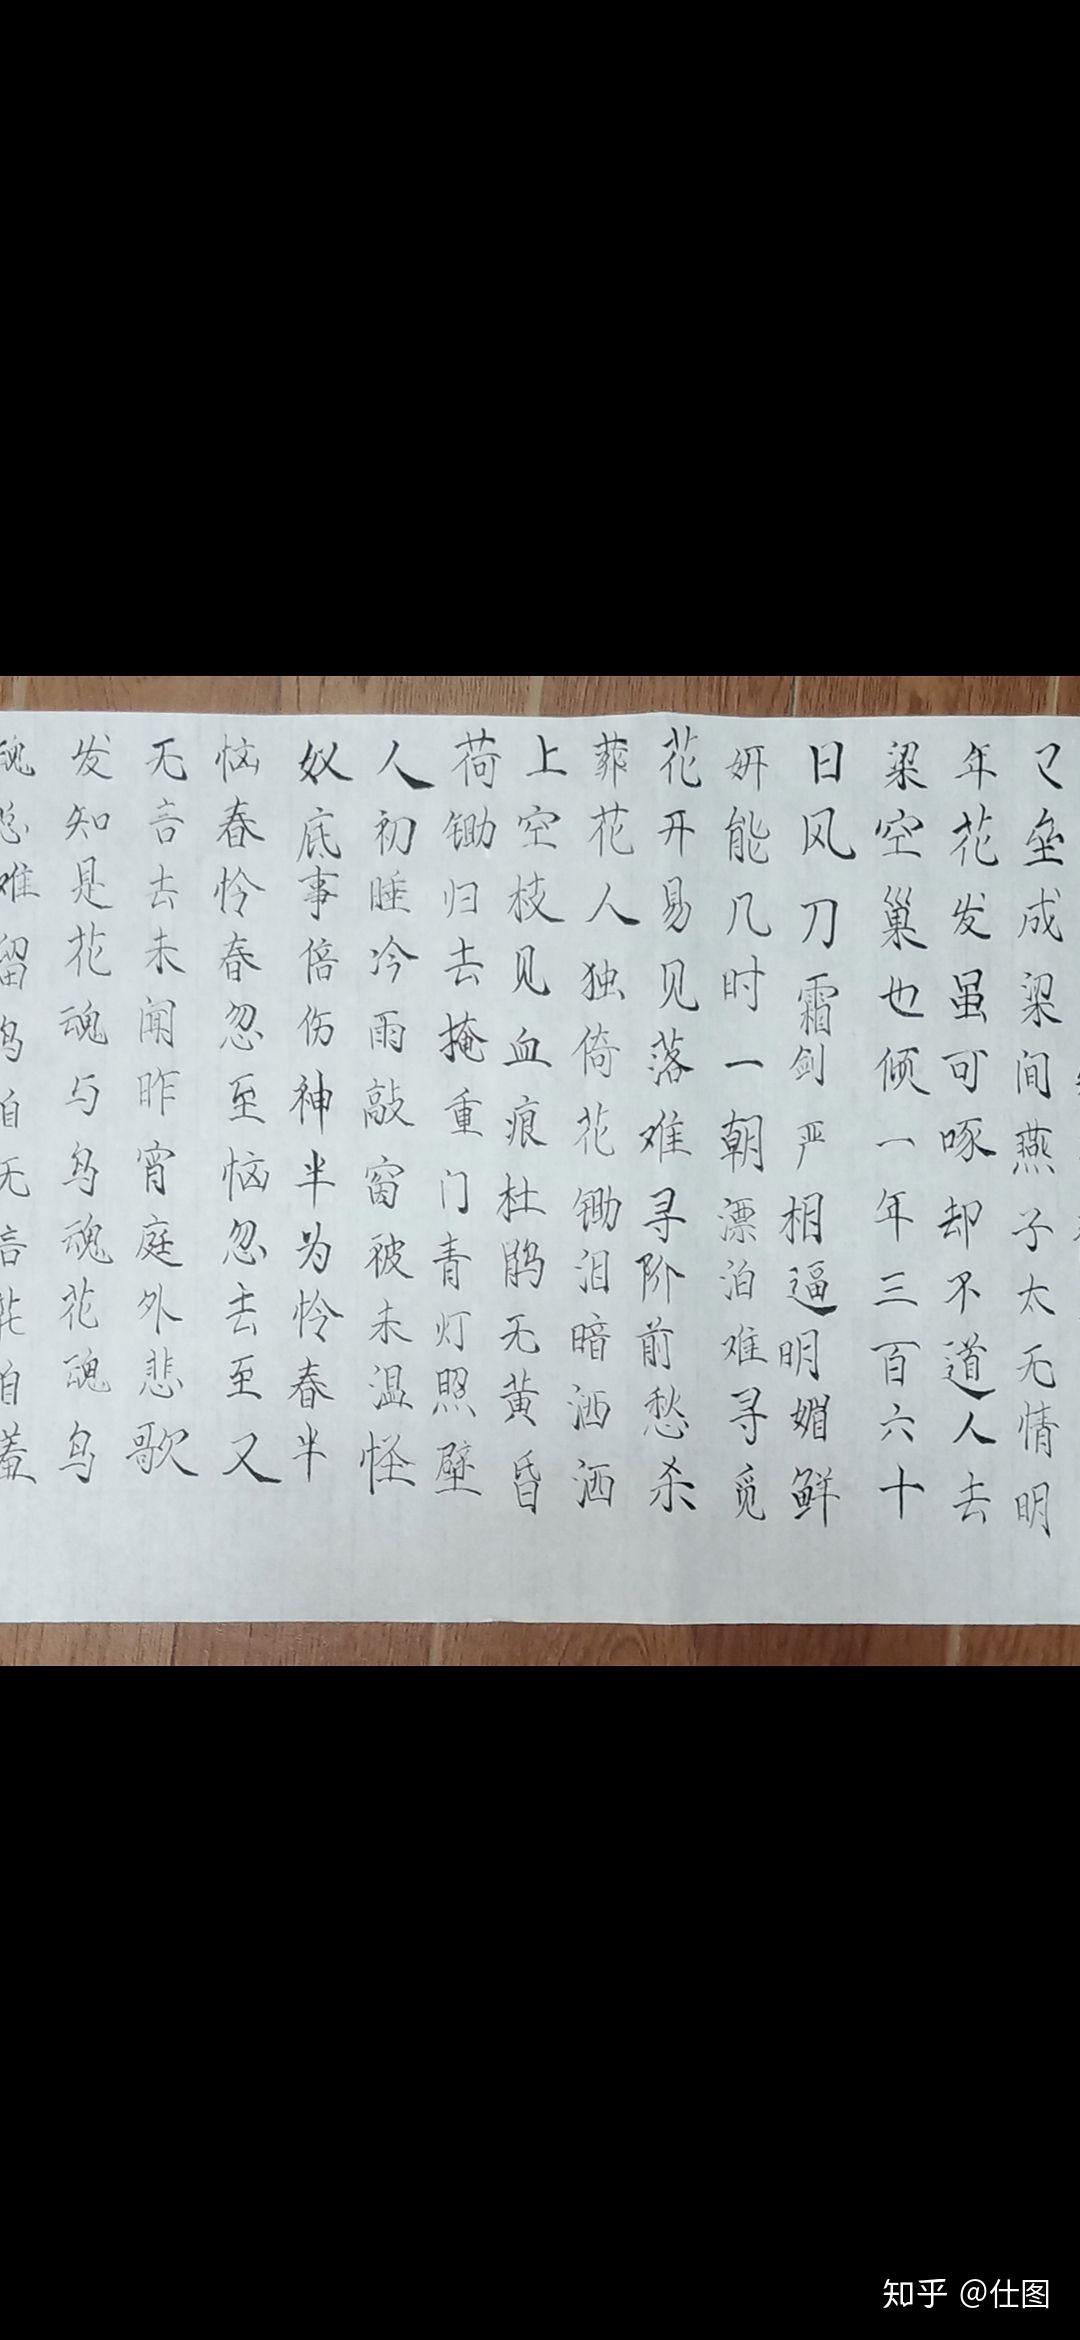 已垒成梁间燕子太无情明
年花发虽可啄却不道人去
梁空巢也倾一年三百六十
日风刀霜剑严相逼明媚鲜
妍能几时一朝漂泊难寻觅
花开易见落难寻阶前愁杀
葬花人独倚花锄泪暗洒洒
上空枝见血痕杜鹃无黄昏
荷锄归去掩重门青灯照壁
人初睡冷雨敲窗被未温怪
奴底事倍伤神半为怜春半
恼春怜春忽至恼忽去至又
无言去未闻昨宵庭外悲歌
发知是花魂与鸟魂花魂鸟
魂总难留鸟自无言花自羞
知乎 @仕图